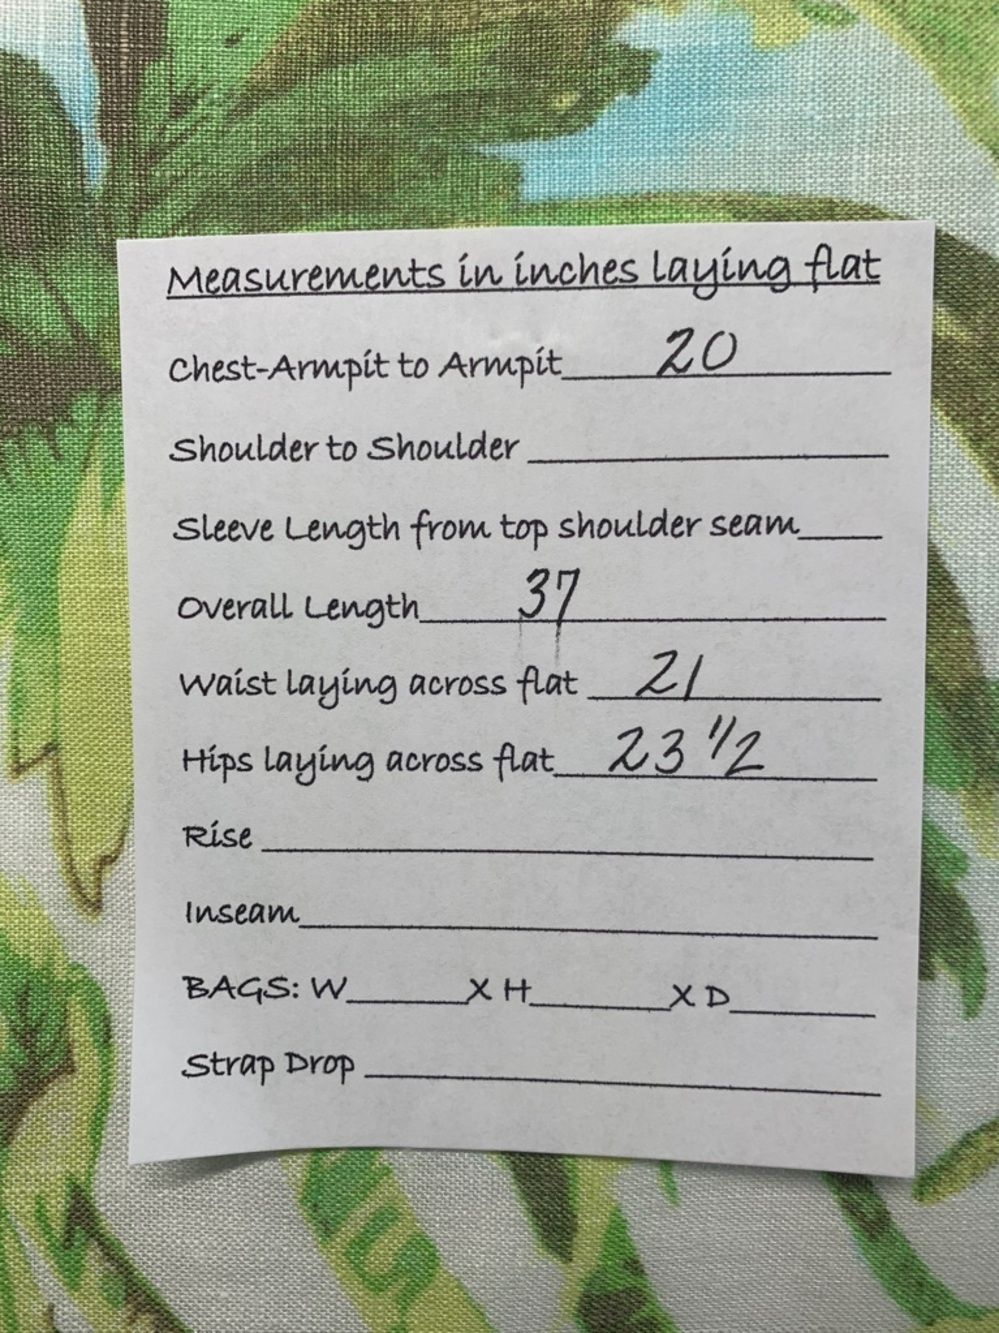 Measurements in inches laying flat
Chest-Armpit to Armpit 20
Shoulder to Shoulder
Sleeve Length from top shoulder seam
Overall Length 37
Waist laying across flat 21
Hips laying across flat 23 1/2
Rise
Inseam
BAGS: W X H X D
Strap Drop